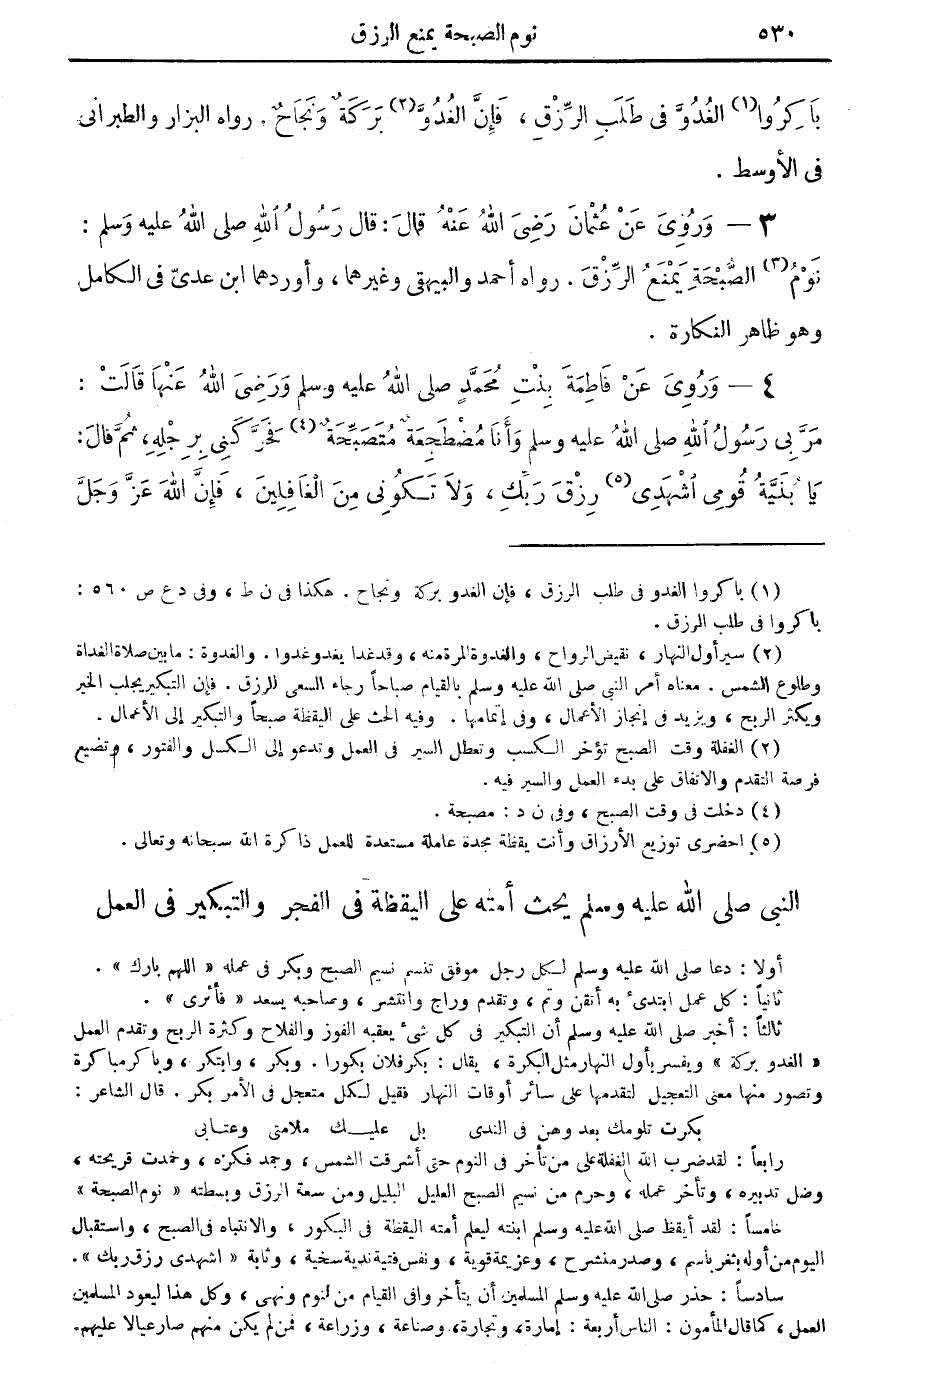 ٥٣٠ نوم الصبحة يمنع الرزق
بَاكِرُوا(١) الغُدُوَّ فى طَلَبِ الرِّزْقِ ، فَإِنَّ الغُدُوَّ(٢) بَرَكَةٌ وَنَجَاحٌ . رواه البزار والطبرانى
فى الأوسط .
٣ — وَرُوِىَ عَنْ عُثْمَانَ رَضِىَ اللهُ عَنْهُ قَالَ : قال رَسُولُ اللهِ صلى اللهُ عليه وَسلم :
نَوْمُ(٣) الصُّبْحَةِ يَمْنَعُ الرِّزْقَ . رواه أحمد والبيهقى وغيرهما ، وأوردهما ابن عدىّ فى الكامل
وهو ظاهر النكارة .
٤ — وَرُوِىَ عَنْ فَاطِمَةَ بِنْتِ مُحَمَّدٍ صلى اللهُ عليه وسلم وَرَضِىَ اللهُ عَنْهَا قَالَتْ :
مَرَّ بِى رَسُولُ اللهِ صلى اللهُ عليه وسلم وَأَنَا مُضْطَجِعَةٌ مُتَصَبِّحَةٌ(٤) فَحَرَّكَنِى بِرِجْلِهِ ، ثُمَّ قالَ :
يَا بُنَيَّةُ قُومِى اشْهَدِى(٥) رِزْقَ رَبِّكِ ، وَلاَ تَكُونِى مِنَ الْغَافِلِينَ ، فَإِنَّ اللهَ عَزَّ وَجَلَّ
(١) باكروا الغدو فى طلب الرزق ، فإن الغدو بركة ونجاح . هكذا فى ن ط ، وفى د ع ص ٥٦٠ :
باكروا فى طلب الرزق .
(٢) سير أول النهار ، نقيض الرواح ، والغدوة المرة منه ، وقد غدا يغدو غدوا . والغدوة : ما بين صلاة الغداة
وطلوع الشمس . معناه أمر النبى صلى الله عليه وسلم بالقيام صباحاً رجاء السعى للرزق . فإن التبكير يجلب الخير
ويكثر الربح ، ويزيد فى إنجاز الأعمال ، وفى إتمامها . وفيه الحث على اليقظة صبحاً والتبكير إلى الأعمال .
(٢) الغفلة وقت الصبح تؤخر الكسب وتعطل السير فى العمل وتدعو إلى الكسل والفتور ، وتضيع
فرصة التقدم والاتفاق على بدء العمل والسير فيه .
(٤) دخلت فى وقت الصبح ، وفى ن د : مصبحة .
(٥) احضرى توزيع الأرزاق وأنت يقظة مجدة عاملة مستعدة للعمل ذاكرة الله سبحانه وتعالى .
النبى صلى الله عليه وسلم يحث أمته على اليقظة فى الفجر والتبكير فى العمل
أولا : دعا صلى الله عليه وسلم لكل رجل موفق تنسم نسيم الصبح وبكر فى عمله « اللهم بارك » .
ثانياً : كل عمل ابتدئ به أتقن وتم ، وتقدم وراج وانتشر ، وصاحبه يسعد « فأثرى » .
ثالثاً : أخبر صلى الله عليه وسلم أن التبكير فى كل شىء يعقبه الفوز والفلاح وكثرة الربح وتقدم العمل
« الغدو بركة » ويفسر بأول النهار مثل البكرة ، يقال : بكر فلان بكورا . وبكر ، وابتكر ، وباكر مباكرة
وتصور منها معنى التعجيل لتقدمها على سائر أوقات النهار فقيل لكل متعجل فى الأمر بكر . قال الشاعر :
بكرت تلومك بعد وهن فى الندى بل عليك ملامتى وعتابى
رابعاً : لقد ضرب الله الغفلة على من تأخر فى النوم حتى أشرقت الشمس ، وجمد فكره ، وخمدت قريحته ،
وضل تدبيره ، وتأخر عمله ، وحرم من نسيم الصبح العليل البليل ومن سعة الرزق وبسطته « نوم الصبحة »
خامساً : لقد أيقظ صلى الله عليه وسلم ابنته ليعلم أمته اليقظة فى البكور ، والانتباه فى الصبح ، واستقبال
اليوم من أوله بثغر باسم ، وصدر منشرح ، وعزيمة قوية ، ونفس فتية ندية سخية ، وثابة « اشهدى رزق ربك » .
سادساً : حذر صلى الله عليه وسلم المسلمين أن يتأخروا فى القيام من النوم ونهى ، وكل هذا ليعود المسلمين
العمل ، كما قال المأمون : الناس أربعة : إمارة ، وتجارة ، وصناعة ، وزراعة ، فمن لم يكن منهم صار عيالا عليهم .